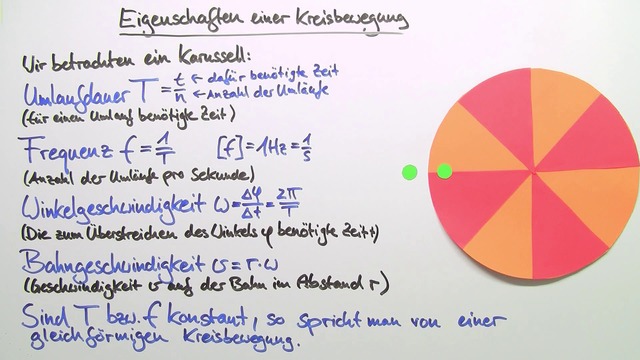 Eigenschaften einer Kreisbewegung
Wir betrachten ein Karussell:
Umlaufdauer T = t/n ← dafür benötigte Zeit
← Anzahl der Umläufe
(für einen Umlauf benötigte Zeit)
Frequenz f = 1/T [f] = 1Hz = 1/s
(Anzahl der Umläufe pro Sekunde)
Winkelgeschwindigkeit ω = Δφ/Δt = 2π/T
(Die zum Überstreichen des Winkels φ benötigte Zeit t)
Bahngeschwindigkeit v = r·ω
(Geschwindigkeit v auf der Bahn im Abstand r)
Sind T bzw. f konstant, so spricht man von einer
gleichförmigen Kreisbewegung.